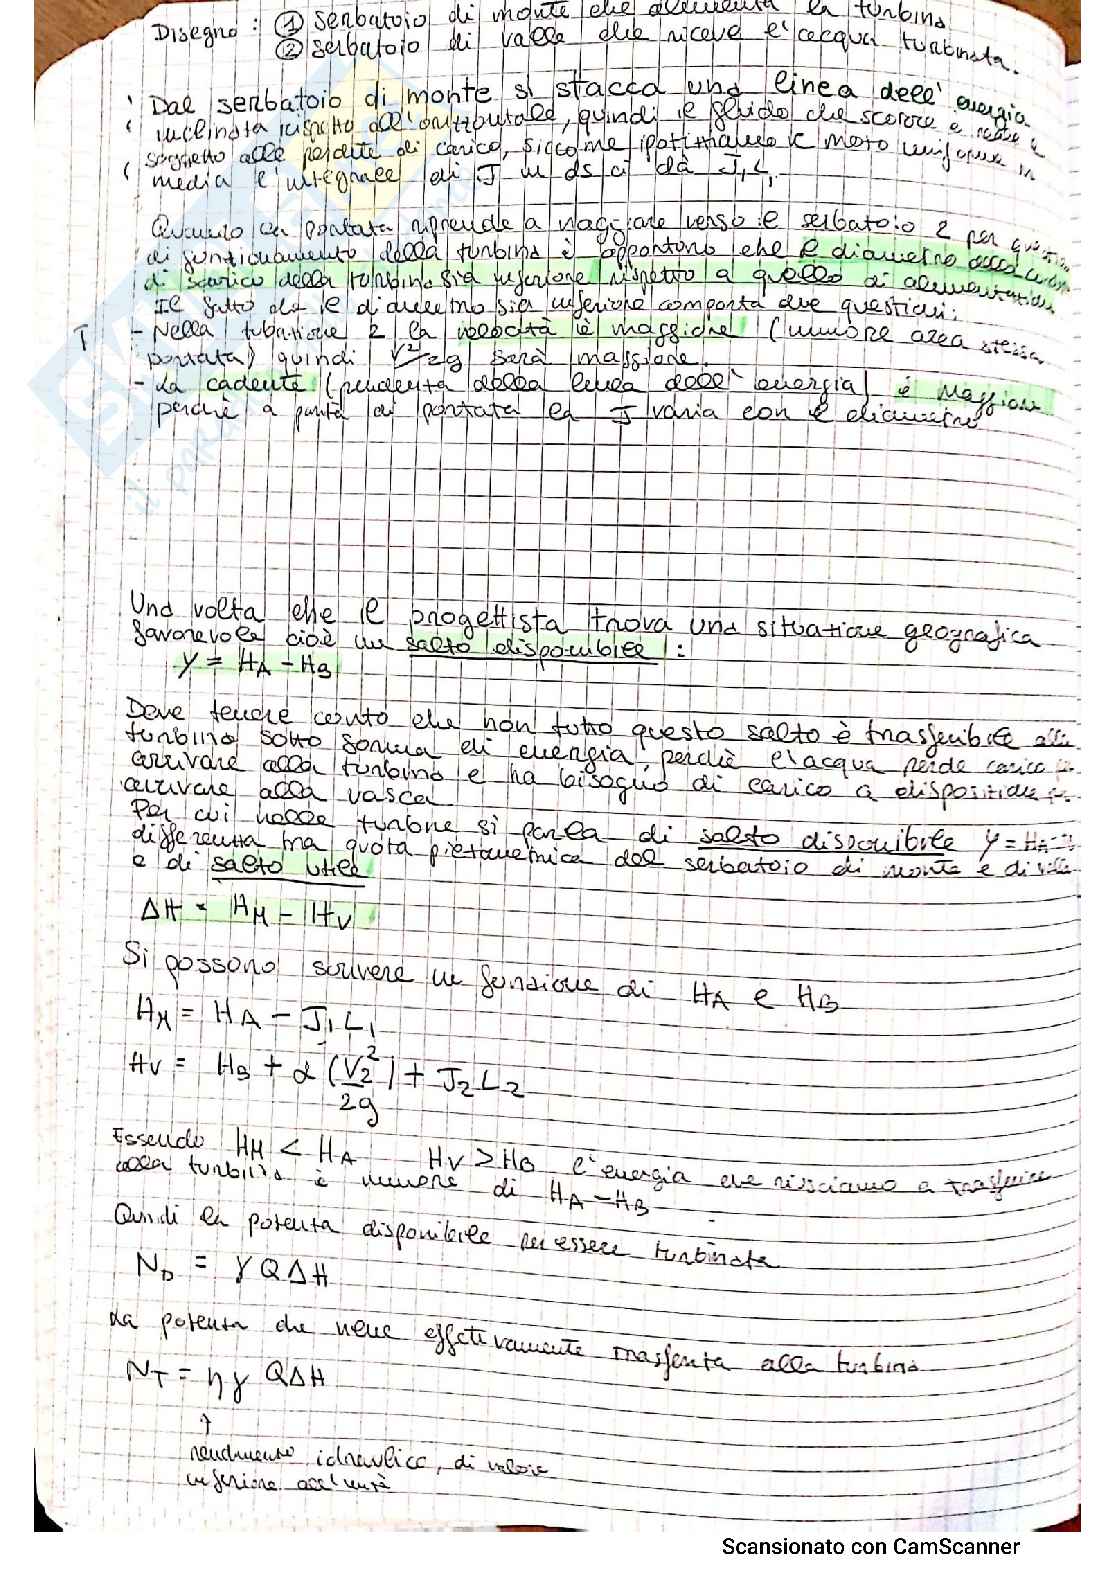 Disegno: ① serbatoio di monte che alimenta la turbina
② serbatoio di valle che riceve l'acqua turbinata.
Dal serbatoio di monte si stacca una linea dell'energia
inclinata rispetto all'orizzontale, quindi il fluido che scorre e
soggetto alle perdite di carico, siccome ipotizziamo il moto uniforme in
media l'integrale di J in ds ci dà J₁L₁
Quando la portata riprende a viaggiare verso il serbatoio 2 per
di funzionamento della turbina è opportuno che il diametro della
di scarico della turbina sia inferiore rispetto a quello di alimentazione
Il fatto che il diametro sia inferiore comporta due questioni:
T - Nella tubazione 2 la velocità è maggiore (minore area stessa
portata) quindi V²/2g sarà maggiore.
- La cadente (pendenza della linea dell'energia) è maggiore
perchè a parità di portata la J varia con il diametro
Una volta che il progettista trova una situazione geografica
favorevole cioè un salto disponibile:
Y = HA - HB
Deve tenere conto che non tutto questo salto è trasferibile alla
turbina sotto forma di energia, perchè l'acqua perde carico
arrivare alla turbina e ha bisogno di carico a disposizione
arrivare alla vasca
Per cui nelle turbine si parla di salto disponibile Y = HA-
differenza tra quota piezometrica del serbatoio di monte e di valle
e di salto utile
ΔH = HM - HV
Si possono scrivere in funzione di HA e HB
HM = HA - J₁L₁
HV = HB + α (V₂²/2g) + J₂L₂
Essendo HM < HA HV > HB l'energia che riusciamo a trasferire
alla turbina è minore di HA-HB
Quindi la potenza disponibile per essere turbinata
ND = γQΔH
La potenza che viene effetivamente trasferita alla turbina
NT = ηγ QΔH
↑
rendimento idraulico, di valore
inferiore all'unità
Scansionato con CamScanner